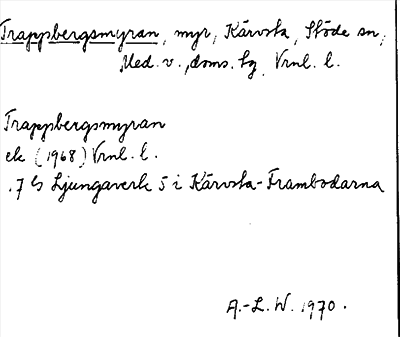 Trappbergsmyran, myr, Kärvsta, Stöde sn,
Med. v., doms. tg. Vrnl. l.
Trappbergsmyran
ek (1968) Vrnl. l.
.7 G Ljungaverk 5 i Kärvsta-Frambodarna
A.-L. W. 1970.